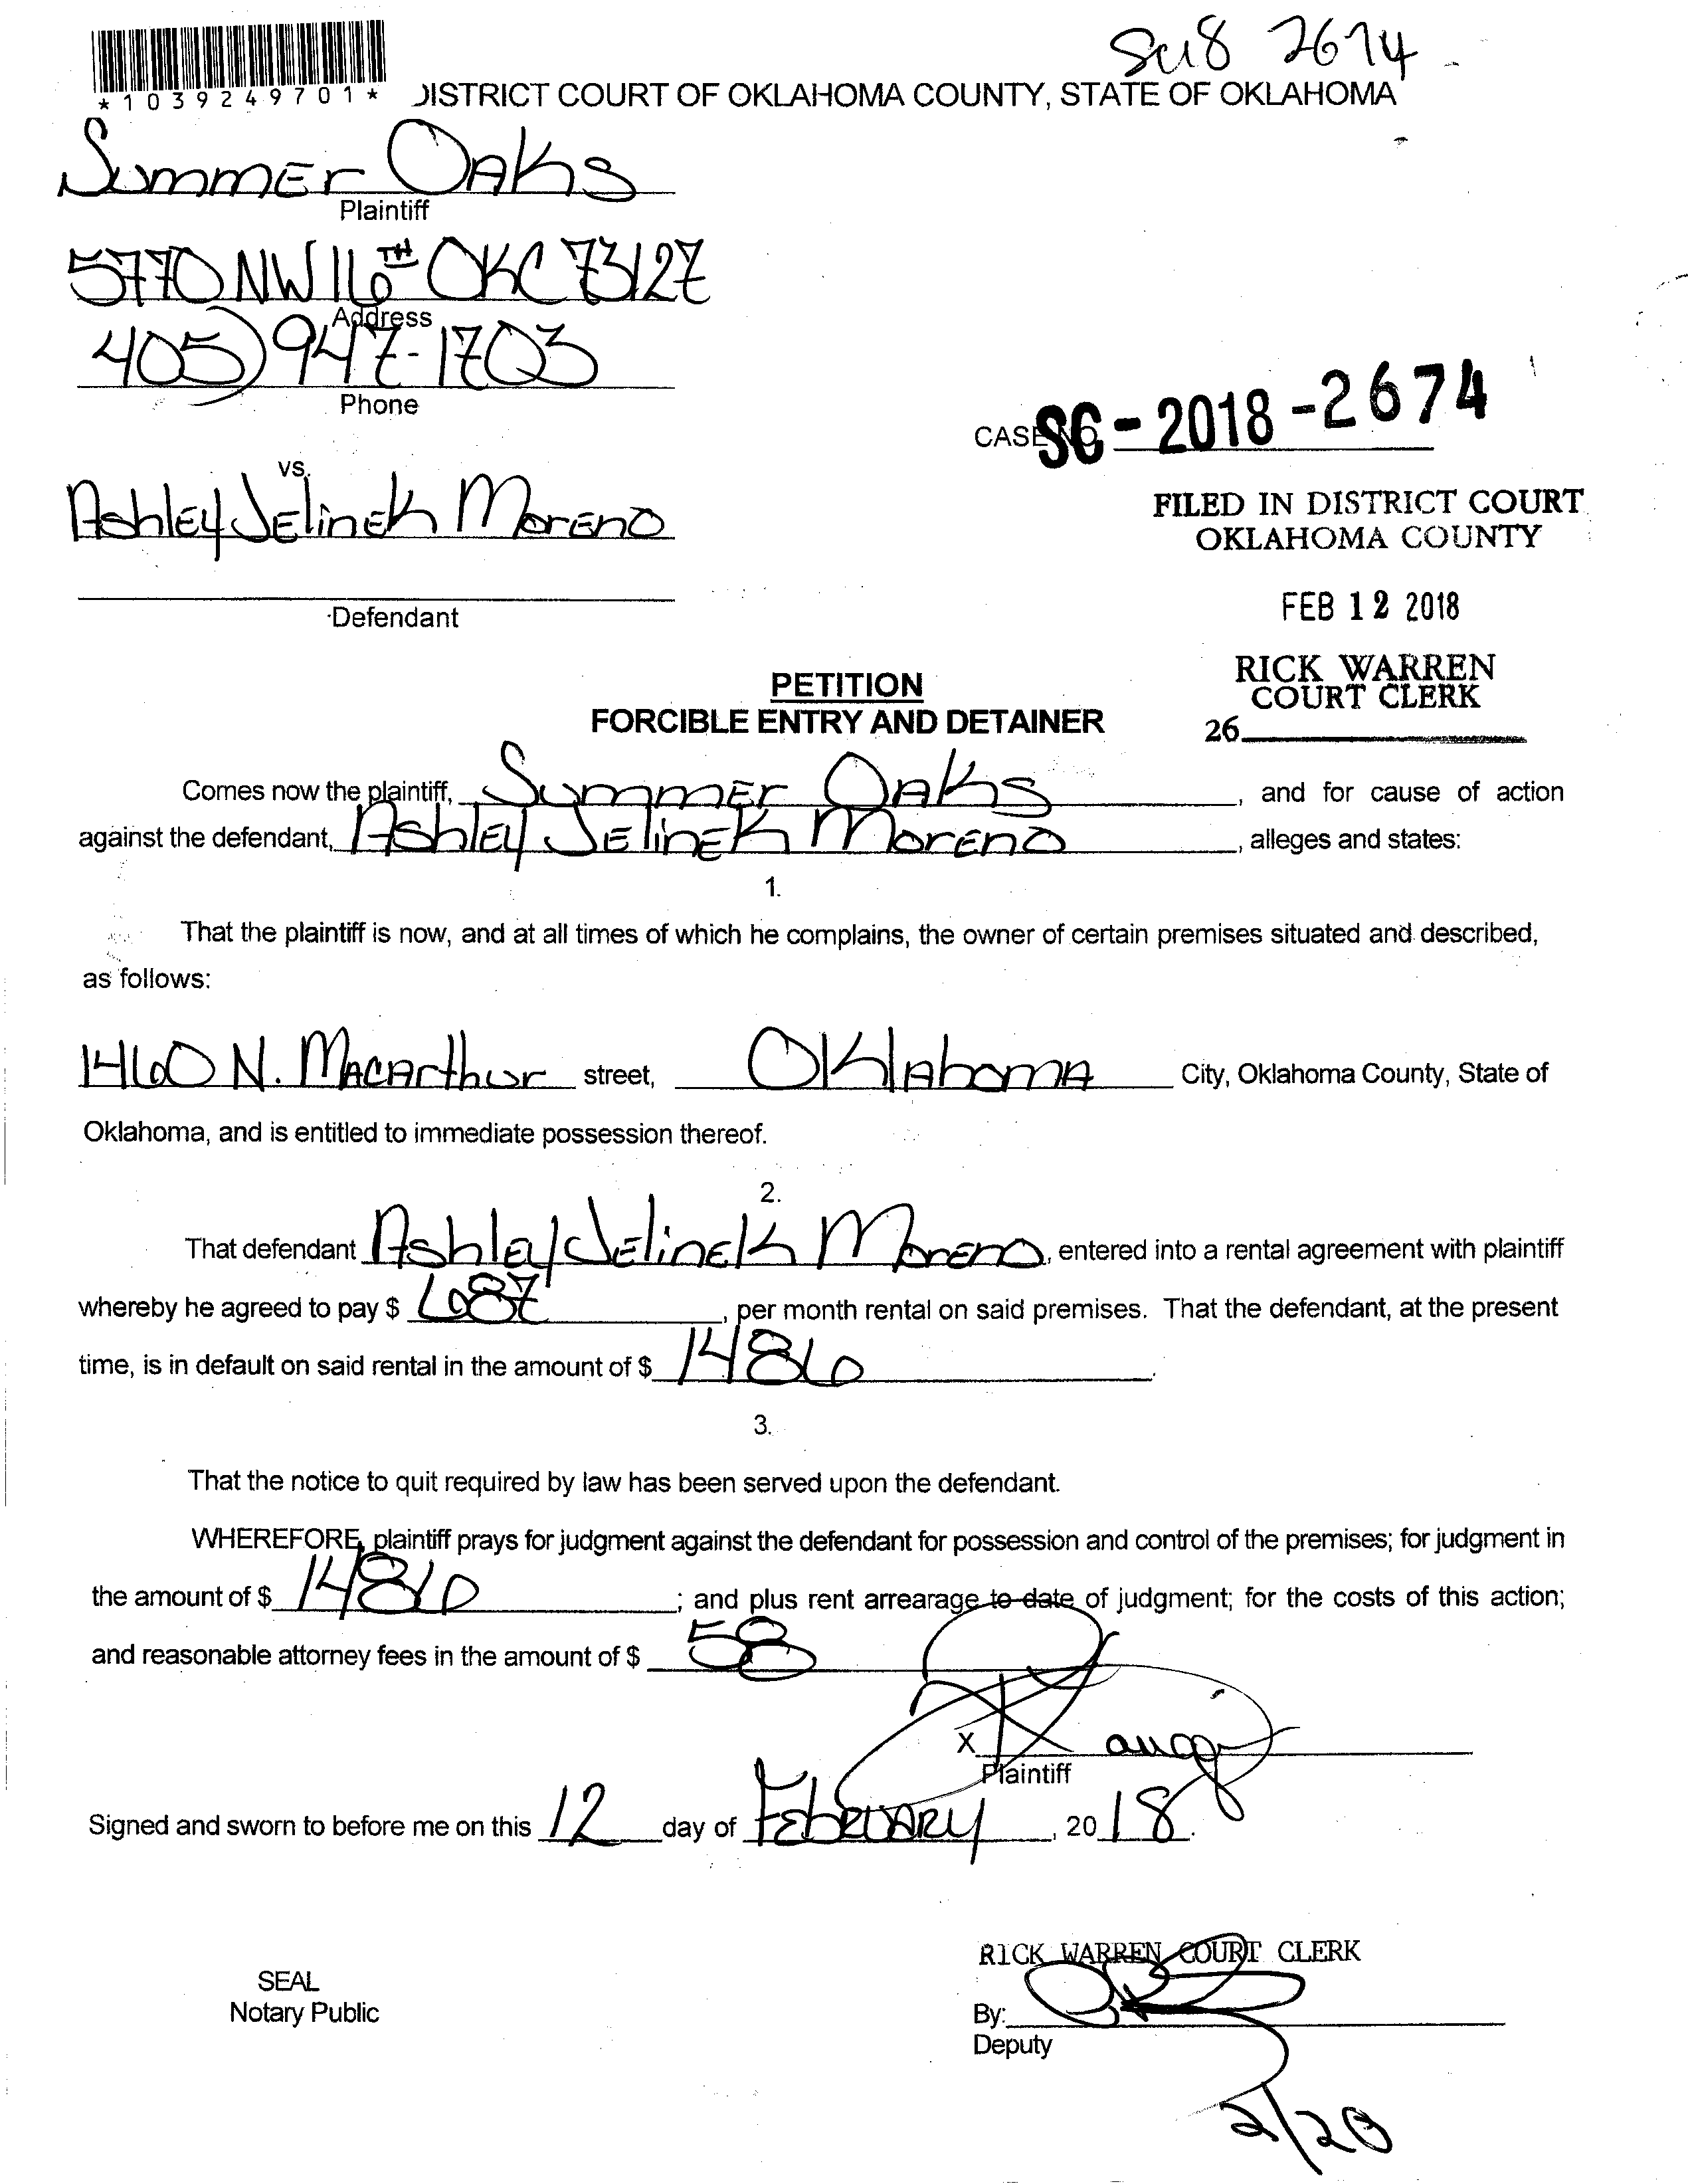 SC18 2674
*1039249701*
DISTRICT COURT OF OKLAHOMA COUNTY, STATE OF OKLAHOMA
Summer Oaks
Plaintiff
5770 NW 16TH OKC 73127
Address
405) 947-1703
Phone
CASE NO. SC-2018-2674
vs.
Ashley Jelinek Moreno
FILED IN DISTRICT COURT
OKLAHOMA COUNTY
FEB 12 2018
Defendant
RICK WARREN
COURT CLERK
26
PETITION
FORCIBLE ENTRY AND DETAINER
Comes now the plaintiff, Summer Oaks, and for cause of action
against the defendant, Ashley Jelinek Moreno, alleges and states:
1.
That the plaintiff is now, and at all times of which he complains, the owner of certain premises situated and described,
as follows:
1460 N. Macarthur street, Oklahoma City, Oklahoma County, State of
Oklahoma, and is entitled to immediate possession thereof.
2.
That defendant Ashley Jelinek Moreno, entered into a rental agreement with plaintiff
whereby he agreed to pay $ 687, per month rental on said premises. That the defendant, at the present
time, is in default on said rental in the amount of $ 1486.
3.
That the notice to quit required by law has been served upon the defendant.
WHEREFORE, plaintiff prays for judgment against the defendant for possession and control of the premises; for judgment in
the amount of $ 1486; and plus rent arrearage to date of judgment; for the costs of this action;
and reasonable attorney fees in the amount of $ 58
X
Plaintiff
Signed and sworn to before me on this 12 day of February, 2018.
RICK WARREN COURT CLERK
SEAL
Notary Public
By:
Deputy
2/20